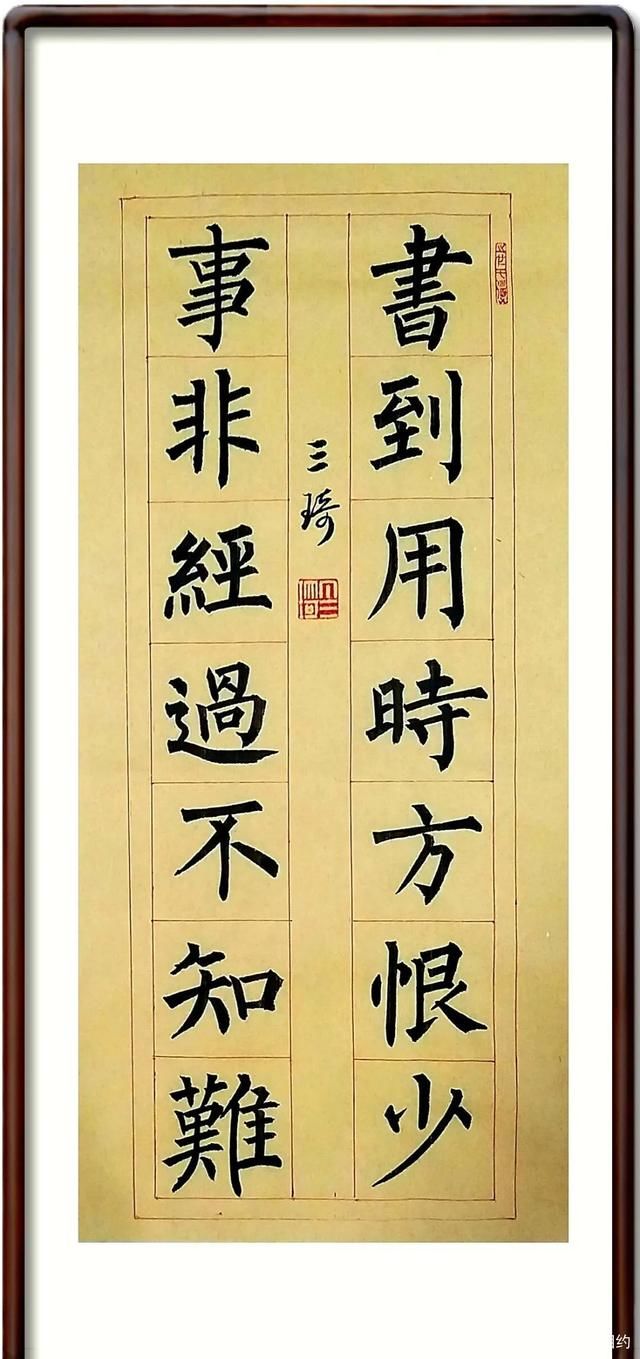 書到用時方恨少
事非經過不知難
三琦